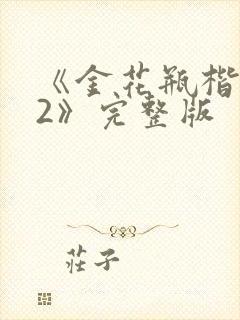 《金花瓶楷
2》完整版
莊子